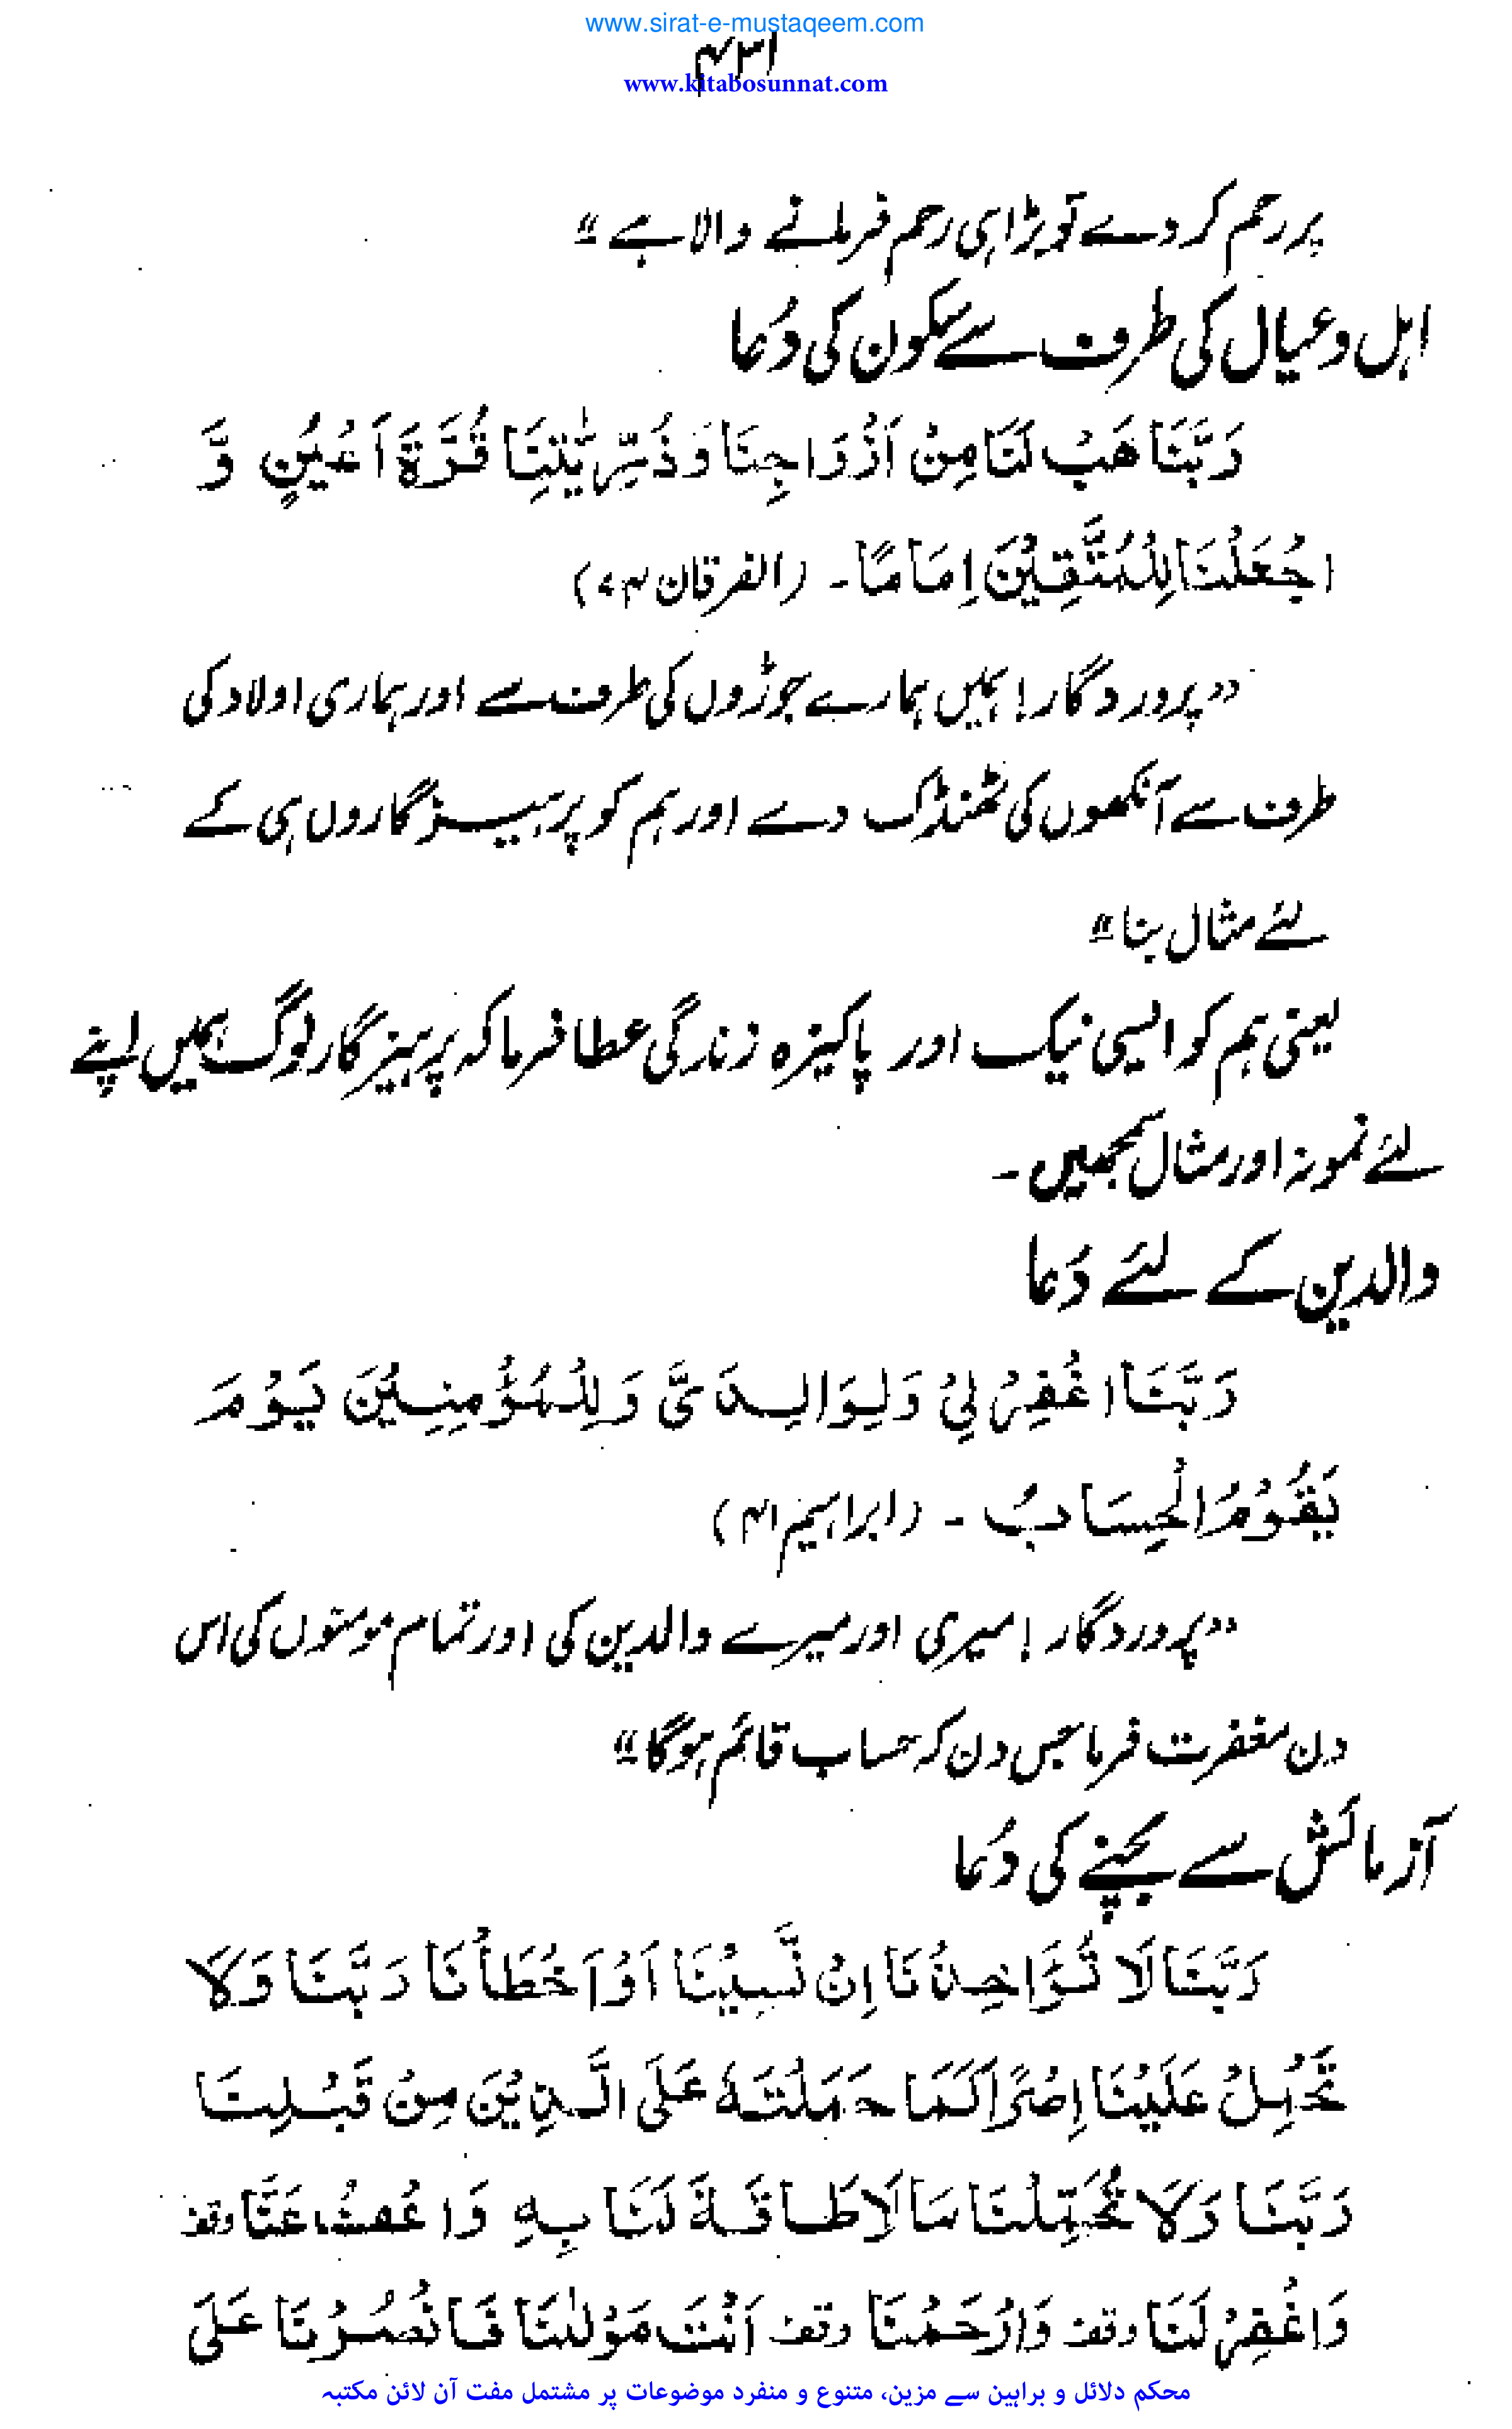 www.sirat-e-mustaqeem.com
۴۳۱
www.kitabosunnat.com
پر رحم کر دے تو بڑا ہی رحم فرمانے والا ہے“
اہل و عیال کی طرف سے سکون کی دُعا
رَبَّنَا هَبْ لَنَا مِنْ اَزْوَاجِنَا وَذُرِّيّٰتِنَا قُرَّةَ اَعْيُنٍ وَّ
اجْعَلْنَا لِلْمُتَّقِيْنَ اِمَامًا۔ (الفرقان ۷۴)
”پروردگار! ہمیں ہمارے جوڑوں کی طرف سے اور ہماری اولاد کی
طرف سے آنکھوں کی ٹھنڈک دے اور ہم کو پرہیزگاروں ہی کے
لئے مثال بنا“
یعنی ہم کو ایسی نیک اور پاکیزہ زندگی عطا فرما کہ پرہیزگار لوگ ہمیں اپنے
لئے نمونہ اور مثال سمجھیں۔
والدین کے لئے دُعا
رَبَّنَا اغْفِرْ لِيْ وَلِوَالِدَيَّ وَلِلْمُؤْمِنِيْنَ يَوْمَ
يَقُوْمُ الْحِسَابُ۔ (ابراہیم ۴۱)
”پروردگار! میری اور میرے والدین کی اور تمام مومنوں کی اس
دن مغفرت فرما جس دن کہ حساب قائم ہوگا“
آزمائش سے بچنے کی دُعا
رَبَّنَا لَا تُؤَاخِذْنَا اِنْ نَّسِيْنَا اَوْ اَخْطَأْنَا رَبَّنَا وَلَا
تَحْمِلْ عَلَيْنَا اِصْرًا كَمَا حَمَلْتَهٗ عَلَى الَّذِيْنَ مِنْ قَبْلِنَا
رَبَّنَا وَلَا تُحَمِّلْنَا مَا لَا طَاقَةَ لَنَا بِهٖ وَاعْفُ عَنَّا وقفہ
وَاغْفِرْ لَنَا وقفہ وَارْحَمْنَا وقفہ اَنْتَ مَوْلٰنَا فَانْصُرْنَا عَلَى
محکم دلائل و براہین سے مزین، متنوع و منفرد موضوعات پر مشتمل مفت آن لائن مکتبہ